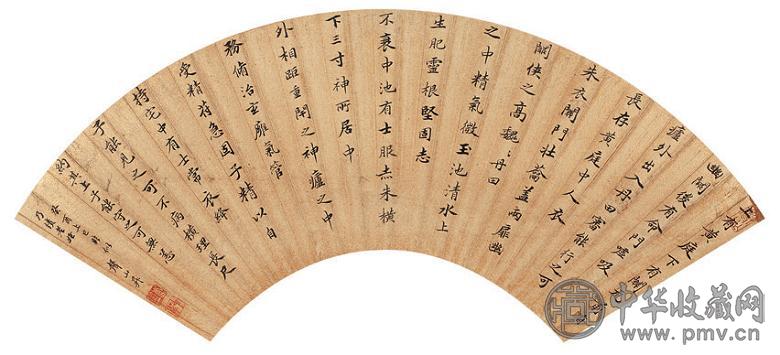 上有黃庭下有關
幽闕後有命門噓吸
廬外出入丹田審能行之可
長存黃庭中人衣
朱衣關門壯蘥蓋兩扉幽
闕俠之高魏丹田
之中精氣微玉池清水上
生肥靈根堅固志
不衰中池有士服赤朱橫
下三寸神所居中
外相距重閉之神廬之中
務脩治玄廱氣管
受精符急固子精以自
持宅中有士常衣絳
子能見之可不病橫理長尺
約其上子能守之可無恙
癸酉上巳
中华收藏网
www.pmv.cn